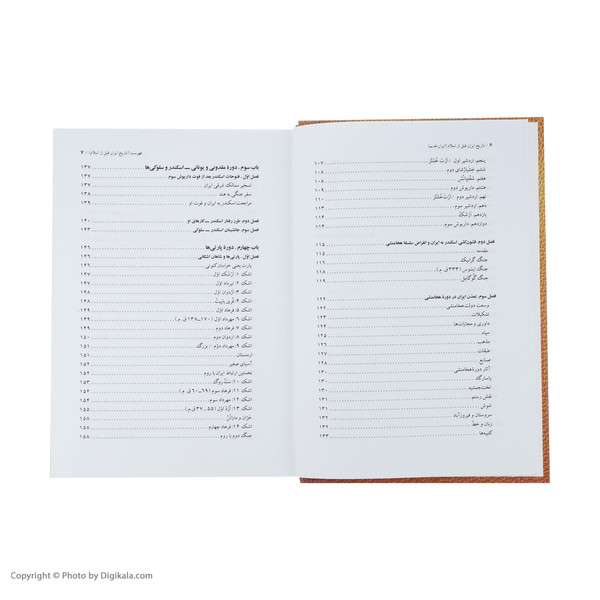 ۶ / تاریخ ایران قبل از اسلام (ایران قدیم)
پنجم. اردشیر اول / اَرتَ خْشَثْرَ ۱۰۷
ششم. خشایارشای دوم ۱۰۸
هفتم. سُغْدیانُس ۱۰۸
هشتم. داریوش دوم ۱۰۸
نهم. اردشیر دوم / اَرتَ خْشَثْرَ
دهم. اردشیر سوم
یازدهم. اَرْشَک ۱۱۴
دوازدهم. داریوش سوم ۱۱۴
فصل دوم. قشون‌کشی اسکندر به ایران و انقراض سلسلهٔ هخامنشی ۱۱۵
مقدمه ۱۱۵
جنگ گرانیک
جنگ ایسوس (۳۳۳ ق. م.) ۱۱۸
جنگ گُوگَمِل ۱۱۹
فصل سوم. تمدن ایران در دورهٔ هخامنشی ۱۲۲
وسعت دولت هخامنشی ۱۲۲
تشکیلات
داوری و مجازات‌ها
سپاه
مذهب
طبقات
صنایع
آثار دورهٔ هخامنشی
پاسارگاد
تخت‌جمشید ۱۳۰
نقش رستم ۱۳۱
شوش ۱۳۱
سروستان و فیروزآباد ۱۳۲
زبان و خط ۱۳۲
کتیبه‌ها ۱۳۳
فهرست (تاریخ ایران قبل از اسلام) / ۷
باب سوم. دورهٔ مقدونی و یونانی ــ اسکندر و سلوکی‌ها ۱۳۷
فصل اول. فتوحات اسکندر بعد از فوت داریوش سوم ۱۳۷
تسخیر ممالک شرقی ایران ۱۳۷
سفر جنگی به هند ۱۳۸
مراجعت اسکندر به ایران و فوت او ۱۳۸
فصل دوم. طرز رفتار اسکندر ــ کارهای او ۱۴۰
فصل سوم. جانشینان اسکندر ــ سلوکی ۱۴۳
باب چهارم. دورهٔ پارتی‌ها ۱۴۶
فصل اول. پارتی‌ها و شاهان اشکانی ۱۴۶
پارت یعنی خراسان کنونی ۱۴۶
اشک ۱: اَرْشَک اوّل ۱۴۷
اشک ۲: تیرداد اوّل ۱۴۷
اشک ۳: اردوان اوّل ۱۴۸
اشک ۴: فْری یاپِیتْ ۱۴۸
اشک ۵: فرهاد اوّل ۱۴۹
اشک ۶: مهرداد اوّل (۱۷۰-۱۳۸ ق. م.) ۱۴۹
اشک ۷: فرهاد دوم ۱۴۹
اشک ۸: اردوان دوم ۱۵۰
اشک ۹: مهرداد دوّم / بزرگ ۱۵۱
ارمنستان ۱۵۱
آسیای صغیر ۱۵۲
نخستین ارتباط ایران با روم ۱۵۲
اشک ۱۰: سَنَدْروگ ۱۵۳
اشک ۱۱: فرهاد سوم (۶۹-۶۰ ق. م.) ۱۵۴
اشک ۱۲: مهرداد سوم ۱۵۴
اشک ۱۳: اُرُدْ اوّل (۵۵-۳۷ ق. م.) ۱۵۵
حرّان و ماردانْ
اشک ۱۴: فرهاد چهارم ۱۵۸
جنگ دوم با روم ۱۵۸
Copyright © Photo by Digikala.com